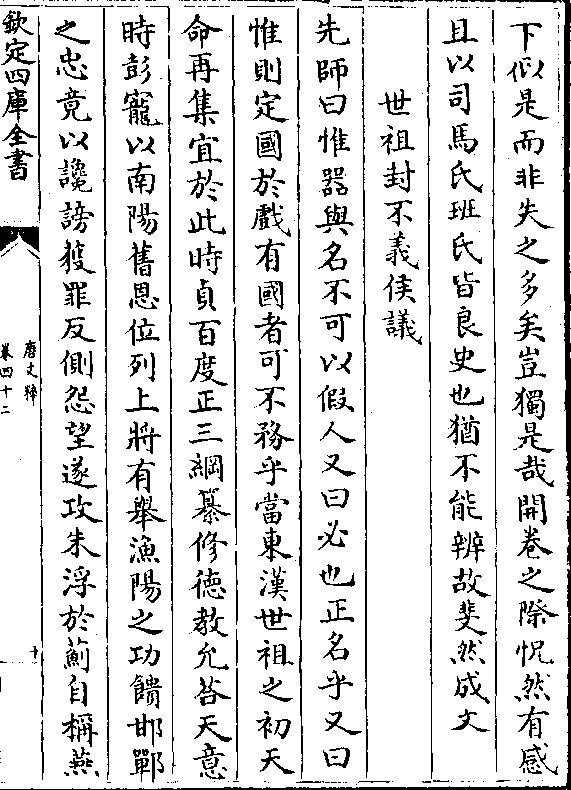 下似是而非失之多矣豈獨是哉開卷之際怳然有感
且以司馬氏班氏皆良史也猶不能辨故斐然成文
世祖封不義侯議
先師曰惟器與名不可以假人又曰必也正名乎又曰
惟則定國於戲有國者可不務乎當東漢世祖之初天
命再集宜於此時貞百度正三綱纂修德教允荅天意
時彭寵以南陽舊恩位列上將有舉漁陽之功饋邯鄲
之忠竟以讒謗獲罪反側怨望遂攻朱浮於薊自稱燕
欽定四庫全書
唐文粹
卷四十二
十